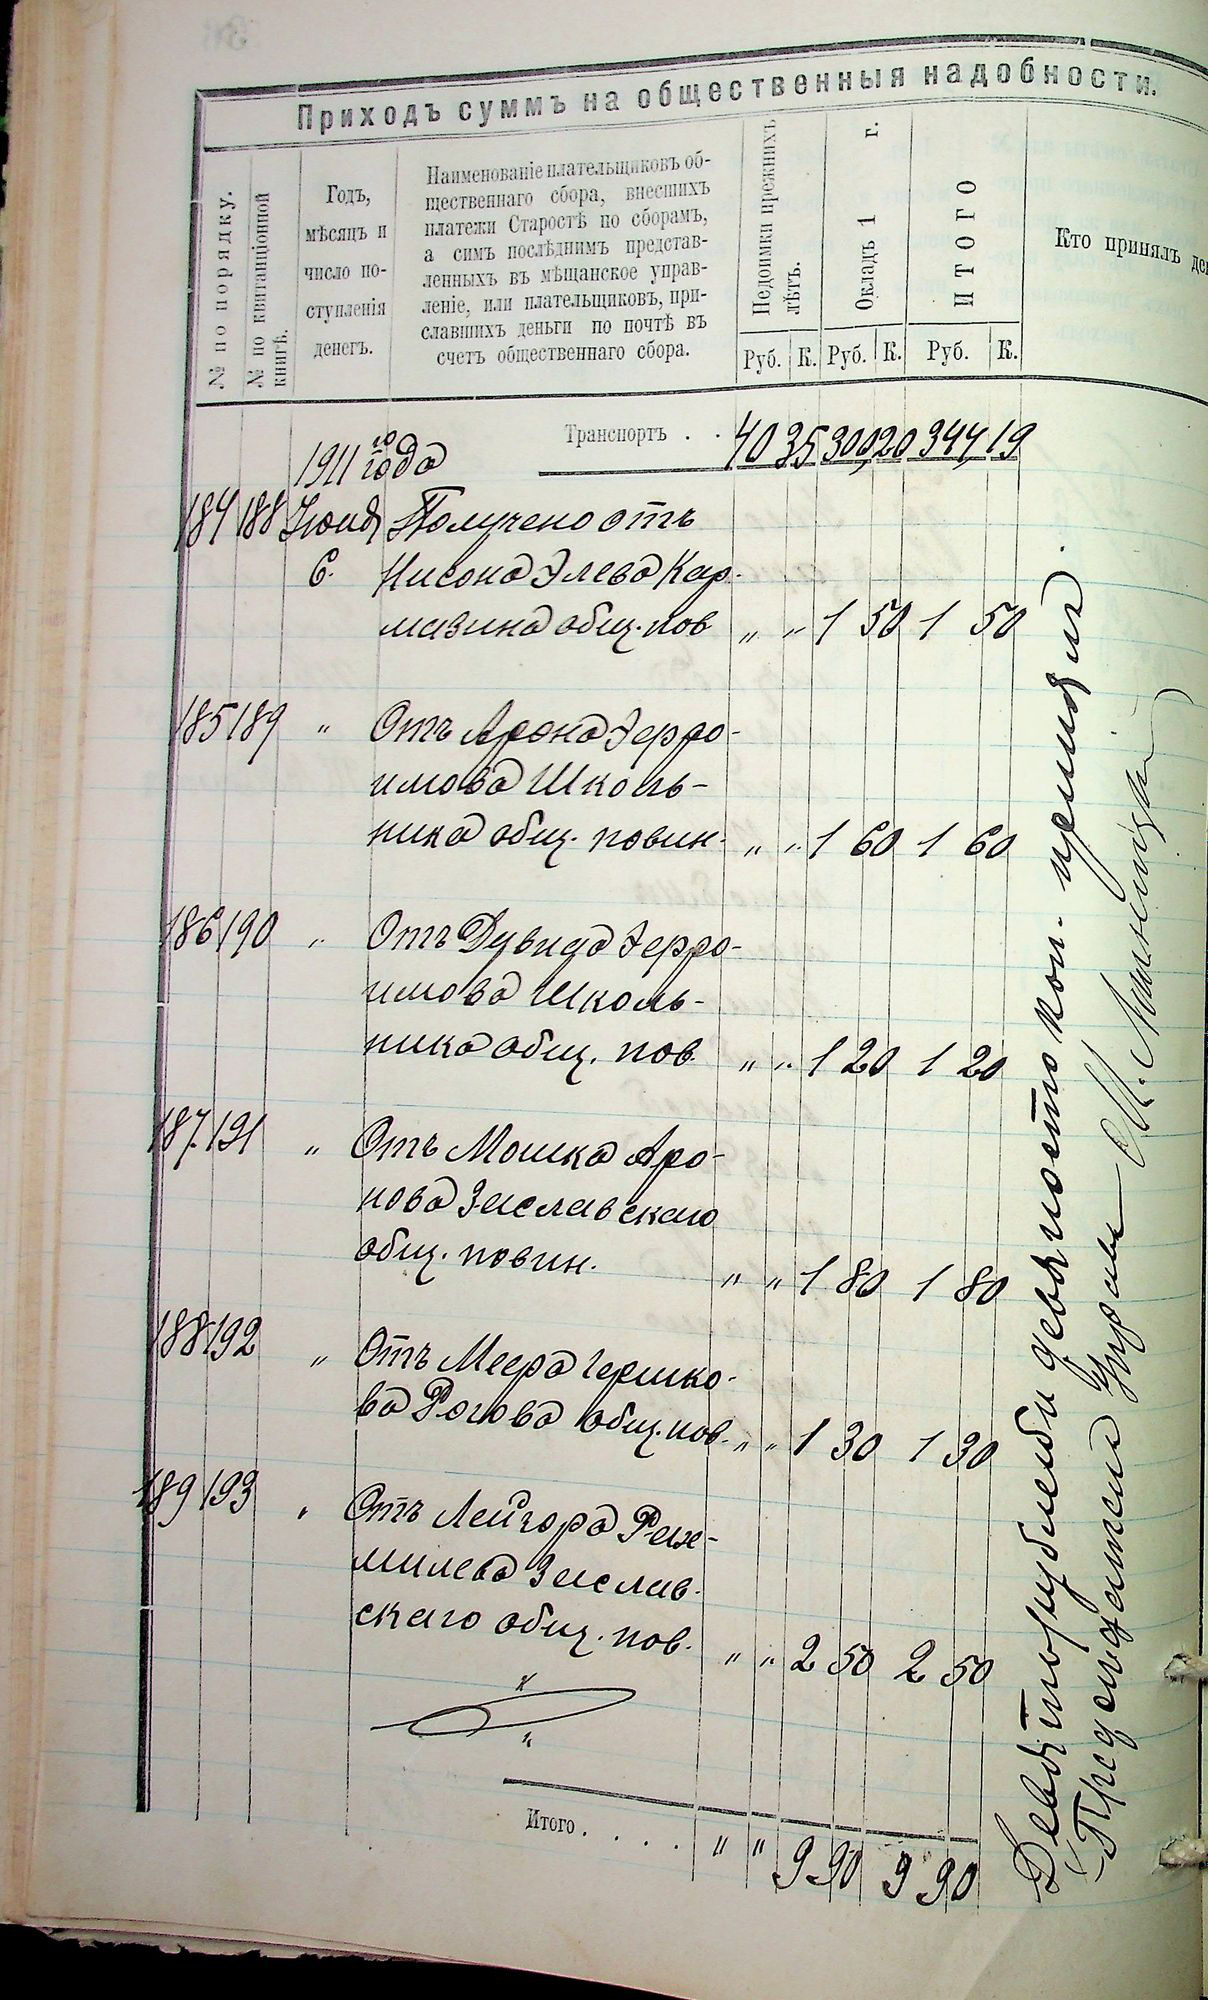 Приходъ суммъ на общественныя надобности.
№ по порядку.
№ по квитанціонной
книгѣ.
Годъ,
мѣсяцъ и
число по-
ступленія
денегъ.
Наименованіе плательщиковъ об-
щественнаго сбора, внесшихъ
платежи Старостѣ по сборамъ,
а симъ послѣднимъ представ-
ленныхъ въ мѣщанское управ-
леніе, или плательщиковъ, при-
славшихъ деньги по почтѣ въ
счетъ общественнаго сбора.
Недоимки прежнихъ
лѣтъ.
Окладъ 1 г.
ИТОГО
Кто принялъ
Руб. К. Руб. К. Руб. К.
Транспортъ . . 40 35 300 20 344 19
1911 го года
184 188 Іюня Получено отъ
6. Нисона Элева Кар-
мазина общ. пов „ „ 1 50 1 50
185 189 „ Отъ Арона Герро-
имова Школь-
ника общ. повин. „ „ 1 60 1 60
186 190 „ Отъ Дувида Герро-
имова Школь-
ника общ. пов „ „ 1 20 1 20
187 191 „ Отъ Мошка Аро-
нова Заславскаго
общ. повин. „ „ 1 80 1 80
188 192 „ Отъ Меера Гершко-
ва Рогова общ. пов. „ „ 1 30 1 30
189 193 „ Отъ Лейзора Рах-
милева Заслав-
скаго общ. пов. „ „ 2 50 2 50
Итого . . . . „ „ 9 90 9 90
Девять рублей девяносто коп. принялъ
Предсѣдатель Управы М.